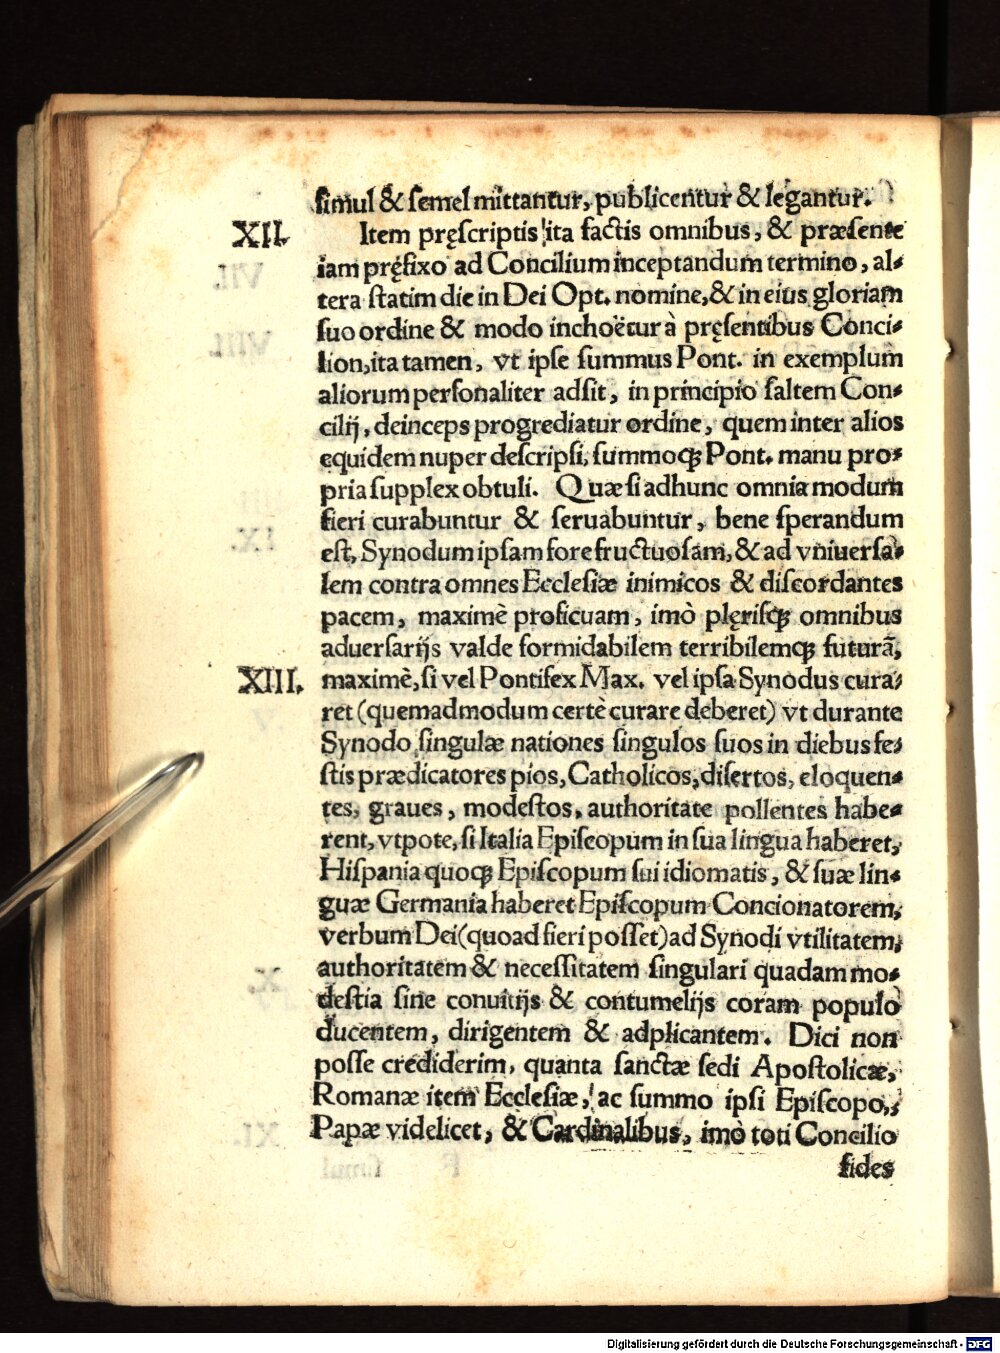 simul & semel mittantur, publicentur & legantur.
XII. Item pręscriptis ita factis omnibus, & præsente
iam pręfixo ad Concilium inceptandum termino, al-
tera statim die in Dei Opt. nomine, & in eius gloriam
suo ordine & modo inchoëtur à pręsentibus Conci-
lion, ita tamen, vt ipse summus Pont. in exemplum
aliorum personaliter adsit, in principio saltem Con-
cilij, deinceps progrediatur ordine, quem inter alios
equidem nuper descripsi, summoqꝫ Pont. manu pro-
pria supplex obtuli. Quæ si adhunc omnia modum
fieri curabuntur & seruabuntur, bene sperandum
est, Synodum ipsam fore fructuosam, & ad vniuersa-
lem contra omnes Ecclesiæ inimicos & discordantes
pacem, maximè proficuam, imò plęrisqꝫ omnibus
aduersarijs valde formidabilem terribilemqꝫ futurã,
XIII. maximè, si vel Pontifex Max. vel ipsa Synodus cura-
ret (quemadmodum certè curare deberet) vt durante
Synodo singulæ nationes singulos suos in diebus fe-
stis prædicatores pios, Catholicos, disertos, eloquen-
tes, graues, modestos, authoritate pollentes habe-
rent, vtpote, si Italia Episcopum in sua lingua haberet,
Hispania quoqꝫ Episcopum sui idiomatis, & suæ lin-
guæ Germania haberet Episcopum Concionatorem,
verbum Dei (quoad fieri posset) ad Synodi vtilitatem,
authoritatem & necessitatem singulari quadam mo-
destia sine conuitijs & contumelijs coram populo
ducentem, dirigentem & adplicantem. Dici non
posse crediderim, quanta sanctæ sedi Apostolicæ,
Romanæ item Ecclesiæ, ac summo ipsi Episcopo,
Papæ videlicet, & Cardinalibus, imò toti Concilio
fides
Digitalisierung gefördert durch die Deutsche Forschungsgemeinschaft - DFG